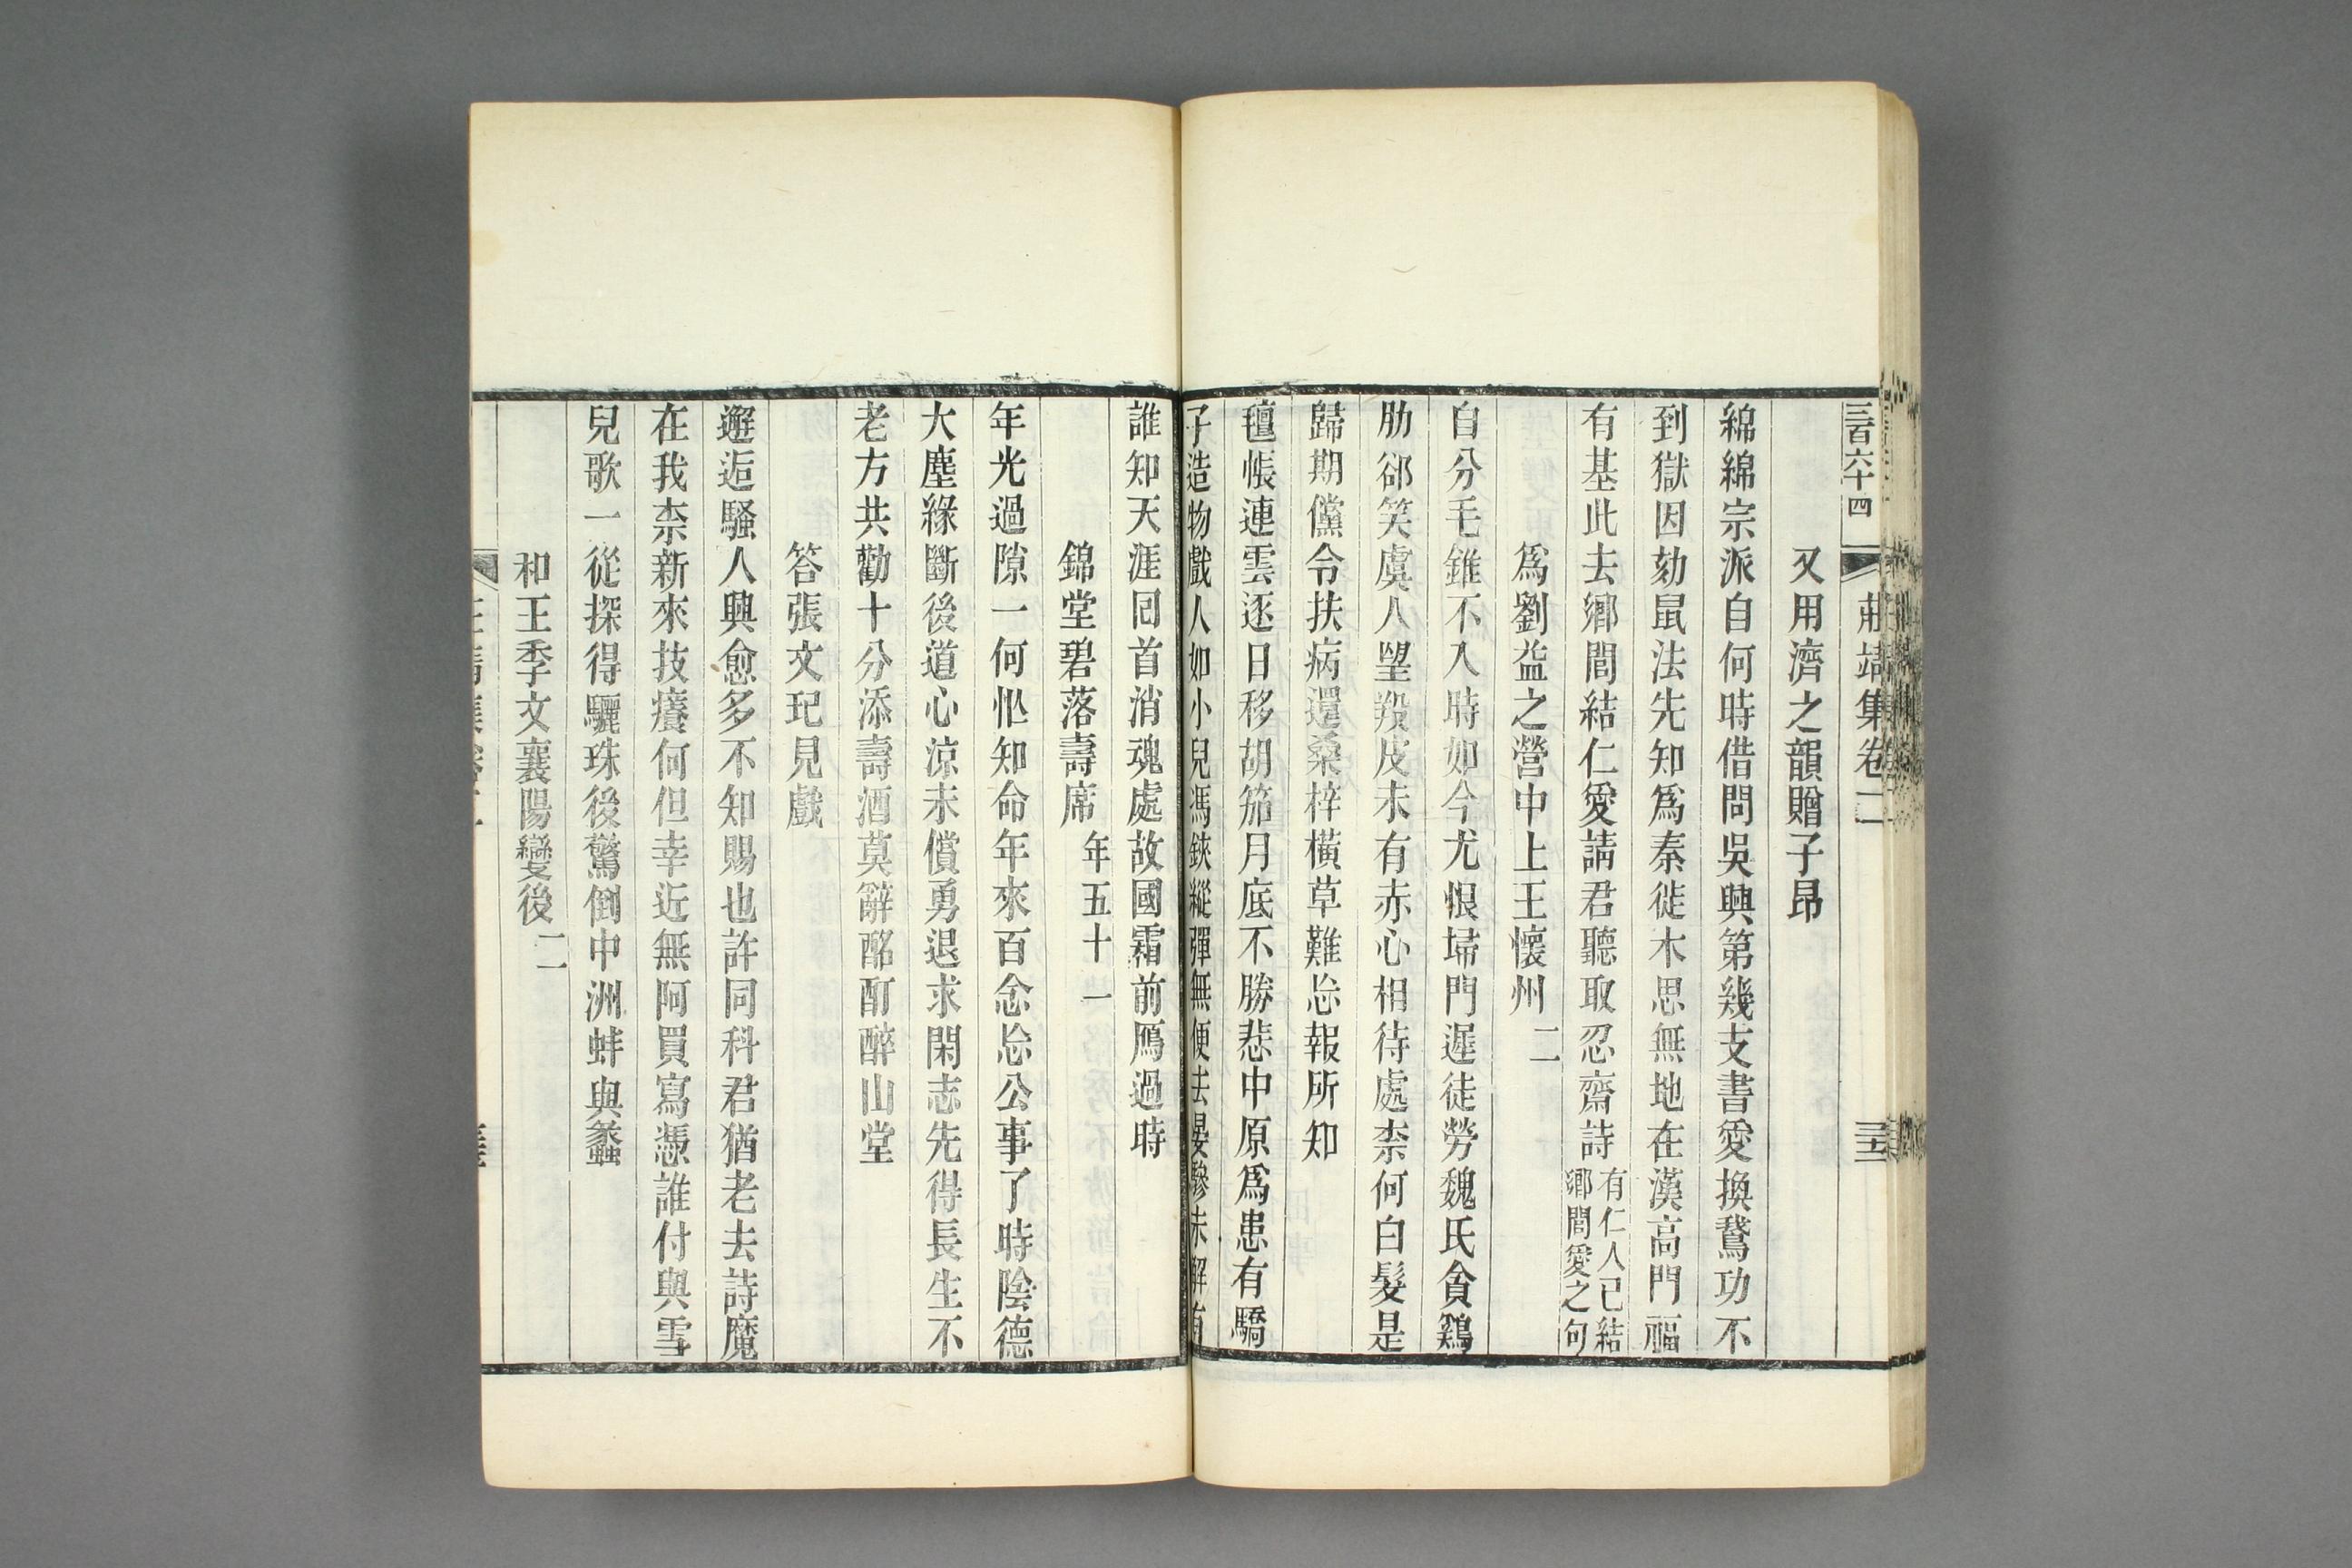 三百六十四 莊靖集卷二 三十二
又用濟之韻贈子昂
綿綿宗派自何時借問吳興第幾支書愛換鵞功不
到獄因劾鼠法先知爲秦徙木思無地在漢高門福
有基此去鄉閭結仁愛請君聽取忍齋詩有仁人已結鄉閭愛之句
爲劉益之營中上王懷州二
自分毛錐不入時如今尤恨埽門遲徒勞魏氏貪鷄
肋郤笑虞人望羖皮未有赤心相待處柰何白髮是
歸期儻令扶病還桑梓橫草難忘報所知
氊帳連雲逐日移胡笳月底不勝悲中原爲患有驕
子造物戲人如小兒馮鋏縱彈無便去晏驂未解有
誰知天涯囘首消魂處故國霜前鴈過時
錦堂碧落壽席年五十一
年光過隙一何怱知命年來百念忘公事了時陰德
大塵緣斷後道心涼未償勇退求閑志先得長生不
老方共勸十分添壽酒莫辭酩酊醉山堂
答張文玘見戲
邂逅騷人興愈多不知賜也許同科君猶老去詩魔
在我柰新來技癢何但幸近無阿買寫憑誰付與雪
兒歌一從探得驪珠後驚倒中洲蚌與蠡
和王季文襄陽變後二